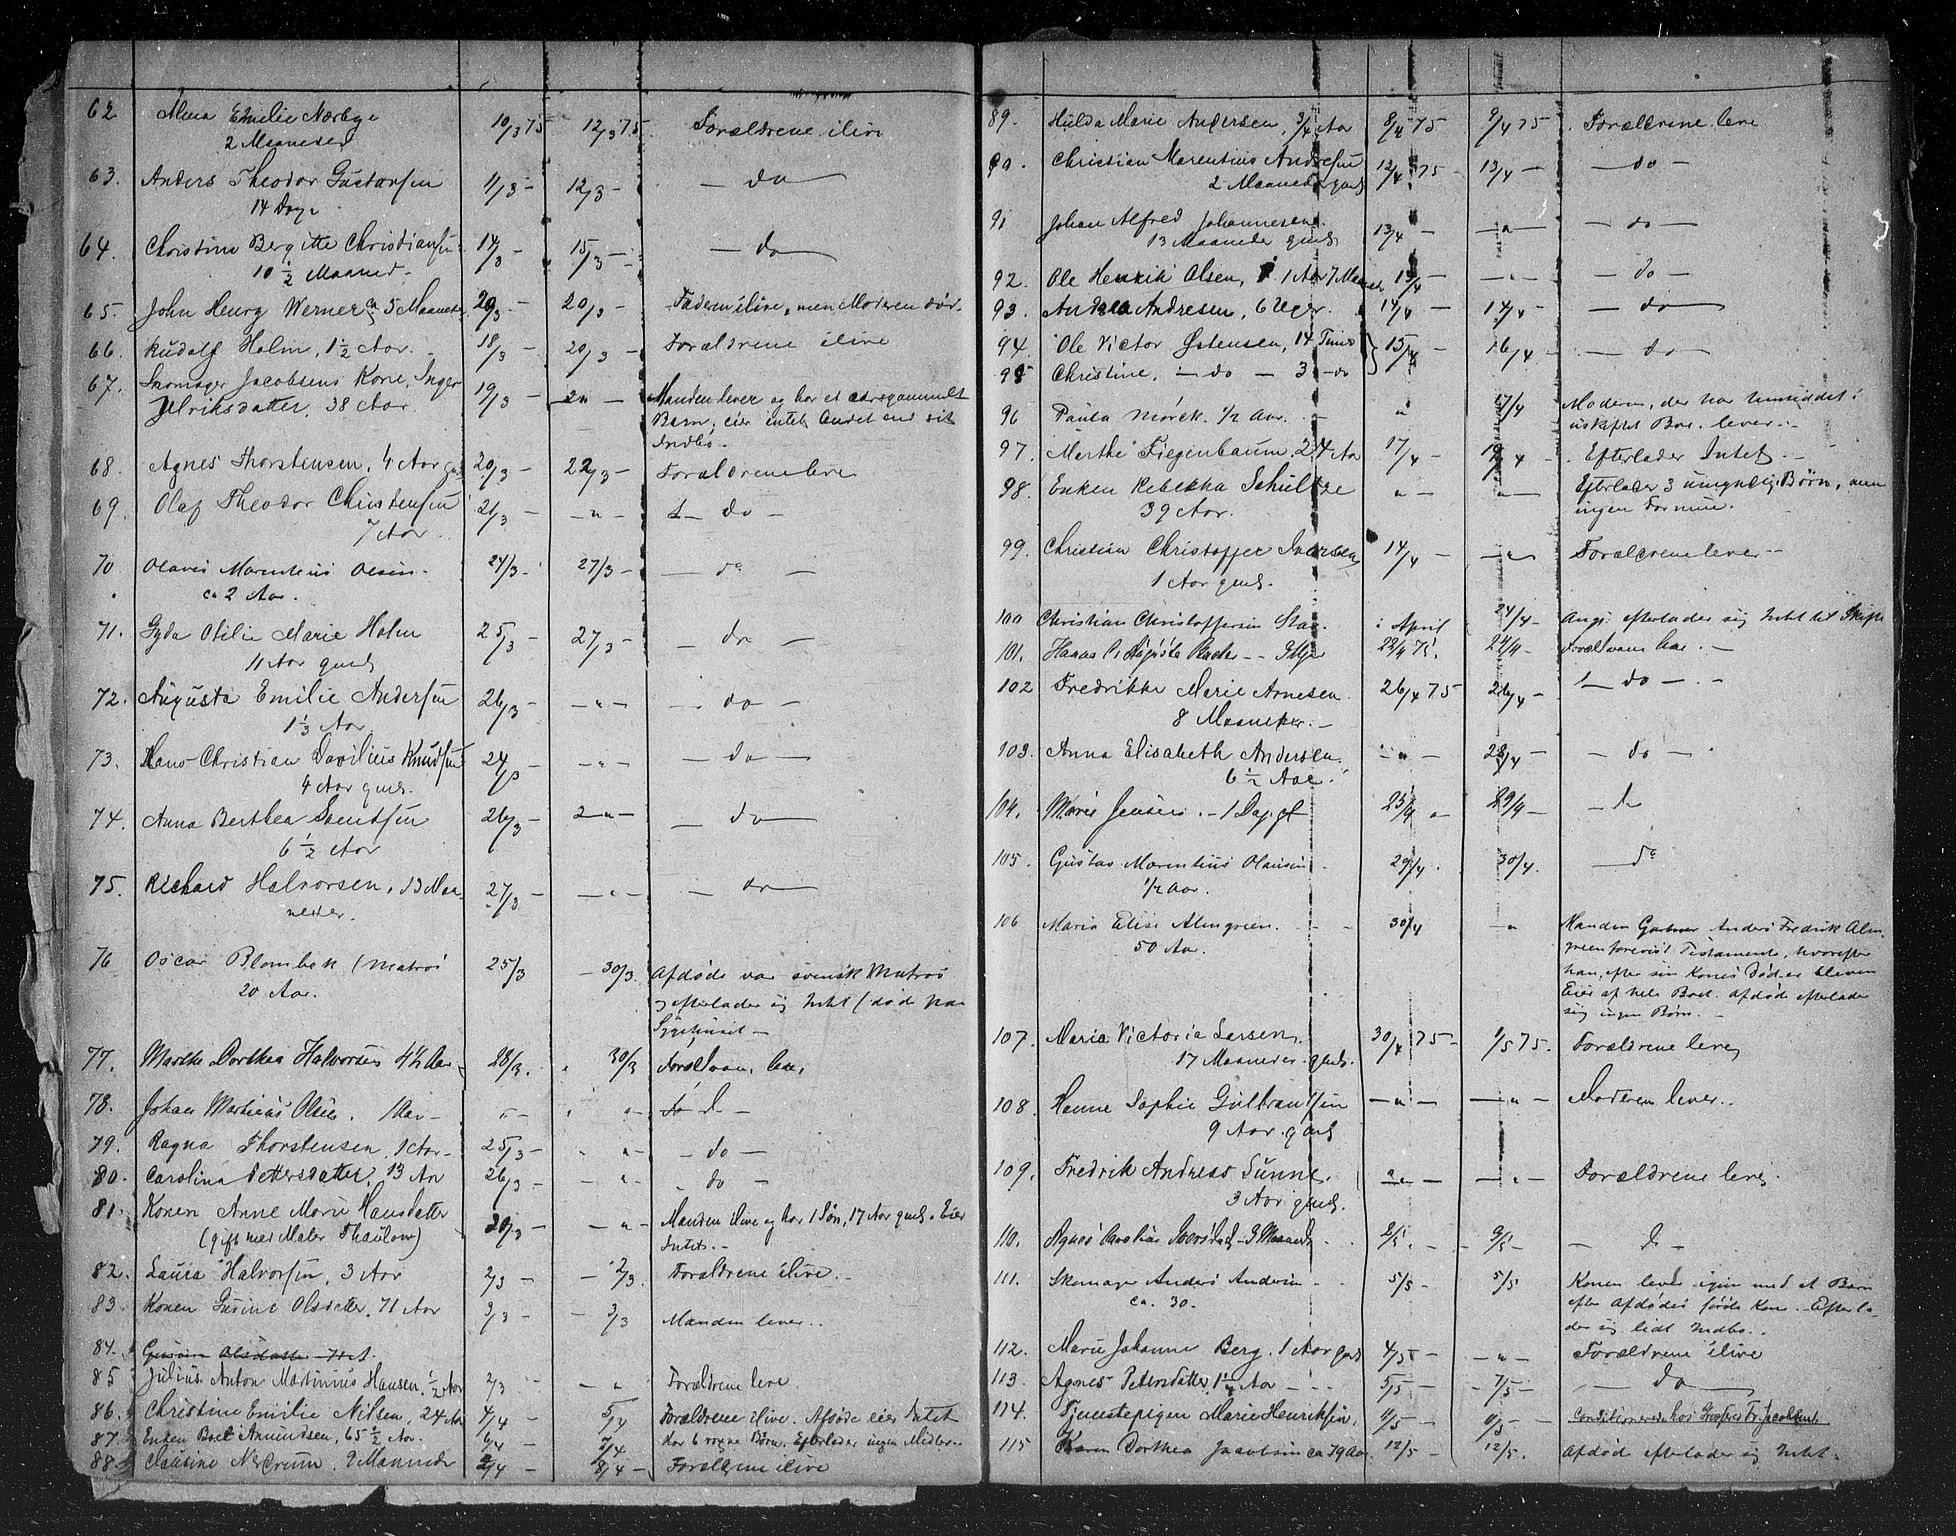 62 Alma Emilie Nærbye 10/3 75 12/3 75. Forældrene ilive
2 Maaneder
63. Anders Theodor Gustavsen 11/3 - 12/3 - — do
14 Dage
64. Christine Bergitte Christiansen 14/3 - 15/3 - — do
10 ½ Maaned.
65. John Henry Werner ca 5 Maaneder 20/3 - 20/3 - Faderen ilive, men Moderen død.
66. Rudolf Holm, 1½ Aar. 18/3 - 20/3 - Forældrene ilive
67. Skomager Jacobsens Kone, Inger 19/3 - - " - Manden lever og har et aarsgammelt
Ulriksdatter, 38 Aar. Barn, eier intet Andet end sit
Indbo.
68. Agnes Thorstensen, 4 Aar gml 20/3 - 22/3 - Forældrene leve
69. Olaf Theodor Christensen 21/3 - - " - — do —
7 Aar.
70. Olaves Marentius Olsen. 24/3 - 27/3 - — do —
ca 2 Aar.
71. Gyda Otilie Marie Holm 25/3 - 27/3 - - do —
11 Aar gml
72. Augusta Emilie Andersen 26/3 - - " - - do —
1⅓ Aar
73. Hans Christian Davilius Knudsen 24/3 - " - - do —
4 Aar gml.
74. Anna Berthea Svendsen 26/3 - - " - - do —
6 ½ Aar
75. Richard Halvorsen, 13 Maa- 27/3 - - " - - do —
neder.
76 Oscar Blombek (Matros 25/3 - 30/3. Afdøde var svensk Matros
20 Aar. og efterlader sig Intet (døde paa
Sygehuset —
77. Marthe Dorthea Halvorsen 4½ Aar 28/3. 30/3 Forældrene leve,
78. Johan Martinius Olsen. 1 Aar - " - " - do -
79. Ragna Thorstensen, 1 Aar - 25/3 - " - - do —
80. Carolina Pettersdatter, 13 Aar 26/3 - - " - do —
81. Konen Anne Marie Hansdatter 20/3 - - " - Manden ilive og har 1 Søn, 17 Aar gml. Eier
(gift med Maler Thaulow) Intet. -
82. Laura Halvorsen, 3 Aar 2/3 - - 2/3. Forældrene ilive. -
83. Konen Gurine Olsdatter, 71 Aar 3/3 - 3/3 Manden lever..
84. Gurine Olsdatter 71 A.
85 Julius Anton Martinius Hansen, ½ Aar 2/3 - - " Forældrene leve.
86. Christine Emilie Nilsen, 24 Aar 4/4 - 5/4 Forældrene ilive. Afdøde eier Intet
87. Enken Boel Amundsen, 65 ½ Aar. 6/4 - 7/4 - Har 6 voxne Børn, Efterlader ingen Midler.
88. 9 Maaneder 2/4 - 8/4 - Forældrene ilive
89. Hulda Marie Andersen, 3/4 Aar 8/4 75 9/4 75. Forældrene leve
90. Christian Marentius Andresen 12/4 75 - 13/4 - — do —
2 Maaneder gml
91 Johan Alfred Johannesen 13/4 - - " - — do —
13 Maaneder gml.
92. Ole Henrik Olsen, 1 Aar 7 Maaneder 13/4 - - " - — do —
93. Andrea Andresen, 6 Uger. 14/4 - 14/4 - — do —
94. Ole Victor Østensen, 14 Timer } 15/4 - 16/4 - — do —
95 Christine, — do — 3 — do
96 Paula Mørck. ½ Aar. - " 17/4 Moderen, der har hensiddet i
uskiftet Bo. lever.
97. Marthe Fiegenbaum, 24 Aar 17/4 - 19/4 - Efterlader Intet. -
98. Enken Rebekka Schultze " - " - Efterlader 3 umyndige Børn, men
39 Aar. ingen Formue.
99. Christian Christoffer Iversen 14/4 - - " Forældrene lever -
1 Aar gml.
100 Christian Christoffersen i April 24/4 - Ang. efterlader sig Intet til Skifte
101. Hanna Augusta 22/4 75. 24/4 - Forældrene leve. -
102 Fredrikke Marie Arnesen. 26/4 75 26/4 - - do -
8 Maaneder. -
103. Anna Elisabeth Andersen. - " - 28/4 - — do —
6 ½ Aar.
104. Marie Jensen. - 1 Dag gl 25/4 - 29/4 - - do
105. Gustav Marentius Olausen. 29/4. 30/4. — do
½ Aar.
106 Maria Elise Almgreen. - 30/4 - " Manden Gartner Anders Fredrik Alm-
50 Aar. green foreviist Testamente, hvorefter
han, efter sin Kones Død er bleven
Eier af hele Boet. Afdøde efterlader
sig ingen Børn. -
107. Maria Victoria Larsen, 30/4 75 - 1/5 75. Forældrene leve
17 Maaneder gml.
108. Hanne Sophie Gulbrandsen - " - - " - Moderen lever..
9 Aar gml
109. Fredrik Andreas Sunne. - " - - " - Forældrene leve.
3 Aar gml.
110. Agnes 9 Maaneder 2/5. - - 9/5 - — do —
111. Skomager Anders Andersen - 5/5 - 5/5 Konen lever igjen med et Barn
ca. 30. efter Afdødes første Kone. Efterla-
der sig lidt Indbo..
112. Marie Johanne Berg, 1 Aar gml 4/5 - - " - Forældrene ilive
113. Agnes Petersdatter, 1¼ Aar - 5/5 - - 7/5 - — do —
114. Tjenestepigen Marie Henriksen, 11/5 - 11/5 - Conditionerede hos Jacobsen
115 Karen Dorthea Jacobsen ca 79 Aar. 12/5 - 12/5. Afdøde efterlader sig Intet.